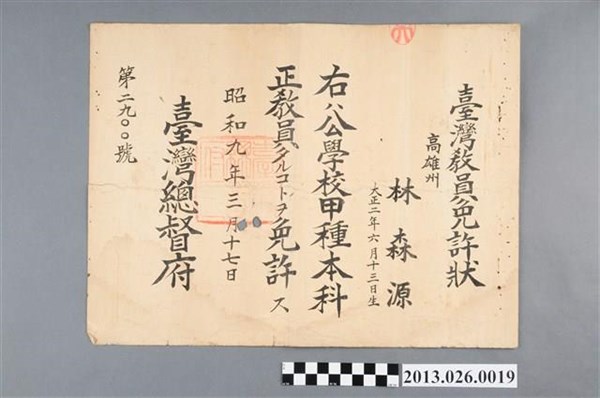 臺灣教員免許狀
高雄州
林森源
大正二年六月十三日生
右ハ公學校甲種本科
正教員タルコトヲ免許ス
昭和九年三月十七日
臺灣總督府
第二九〇〇號
2013.026.0019